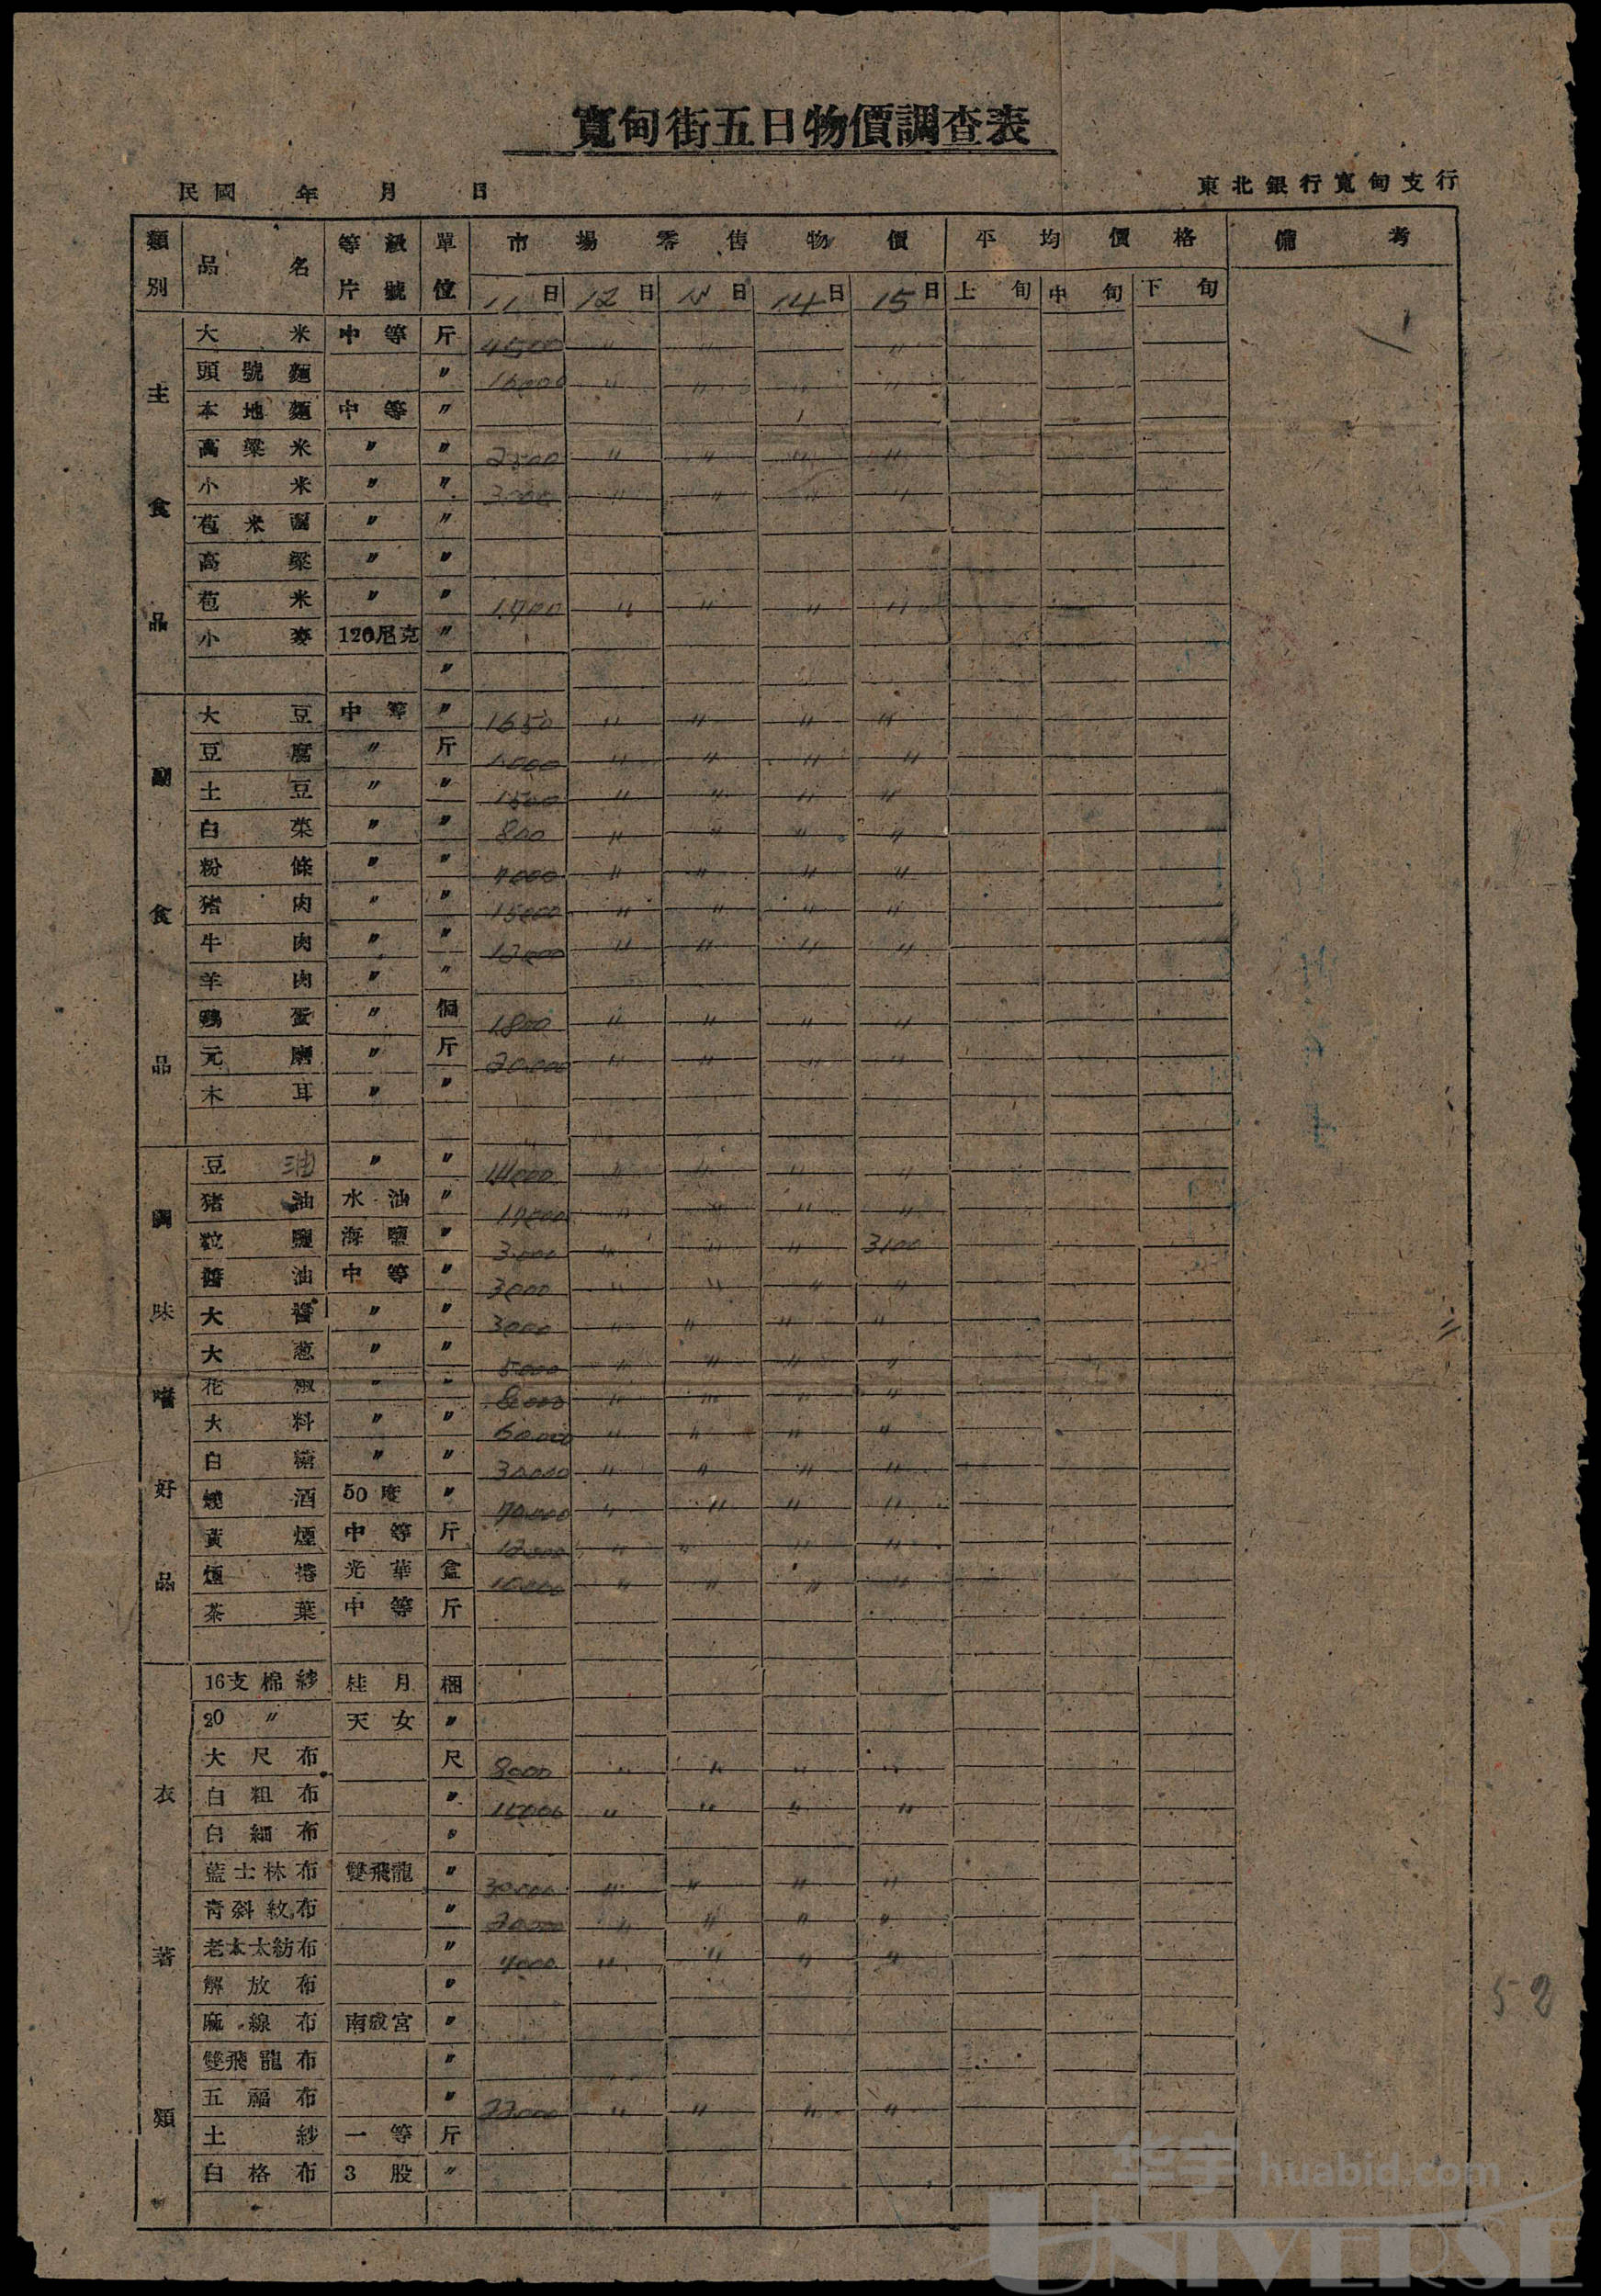 寬甸街五日物價調查表
民國 年 月 日 東北銀行寬甸支行
類別 品名 等級片號 單位 市場零售物價 平均價格 備考
11日 12日 日 14日 15日 上旬 中旬 下旬
主食品
大米 中等 斤 4500 〃 〃 〃
頭號麵 〃 16000 〃 〃 〃 〃
本地麵 中等 〃
高粱米 〃 〃 2500 〃 〃 〃 〃
小米 〃 〃 3000 〃 〃 〃 〃
苞米麵 〃 〃
高粱 〃 〃
苞米 〃 〃 1700 〃 〃 〃 〃
小麥 120尼克 〃
〃
副食品
大豆 中等 〃 1650 〃 〃 〃 〃
豆腐 〃 斤 1000 〃 〃 〃 〃
土豆 〃 〃 1500 〃 〃 〃 〃
白菜 〃 〃 800 〃 〃 〃 〃
粉條 〃 〃 7000 〃 〃 〃 〃
猪肉 〃 〃 15000 〃 〃 〃 〃
牛肉 〃 〃 12000 〃 〃 〃 〃
羊肉 〃 〃
鷄蛋 〃 個 1800 〃 〃 〃 〃
元磨 〃 斤 20000 〃 〃 〃 〃
木耳 〃 〃
調味嗜好品
豆油 〃 〃 〃 〃 〃 〃
猪油 水油 〃 〃 〃 〃 〃
粒鹽 海鹽 〃 3000 〃 〃 〃 3100
醬油 中等 〃 3000 〃 〃 〃 〃
大醬 〃 〃 3000 〃 〃 〃 〃
大葱 〃 〃 5000 〃 〃 〃 〃
花椒 〃 〃 〃 〃 〃 〃
大料 〃 〃 60000 〃 〃 〃 〃
白糖 〃 〃 30000 〃 〃 〃 〃
燒酒 50度 〃 〃 〃 〃 〃
黃煙 中等 斤 12000 〃 〃 〃 〃
煙捲 光華 盒 10000 〃 〃 〃 〃
茶葉 中等 斤
衣著類
16支棉紗 桂月 梱
20〃 天女 〃
大尺布 尺 8000 〃 〃 〃 〃
白粗布 〃 15000 〃 〃 〃 〃
白細布 〃
藍士林布 雙飛龍 〃 30000 〃 〃 〃 〃
青斜紋布 〃 20000 〃 〃 〃 〃
老本太紡布 〃 7000 〃 〃 〃 〃
解放布 〃
麻線布 南成宮 〃
雙飛龍布 〃
五福布 〃 22000 〃 〃 〃 〃
土紗 一等 斤
白格布 3股 〃
52
华宇 huabid.com
UNIVERSE